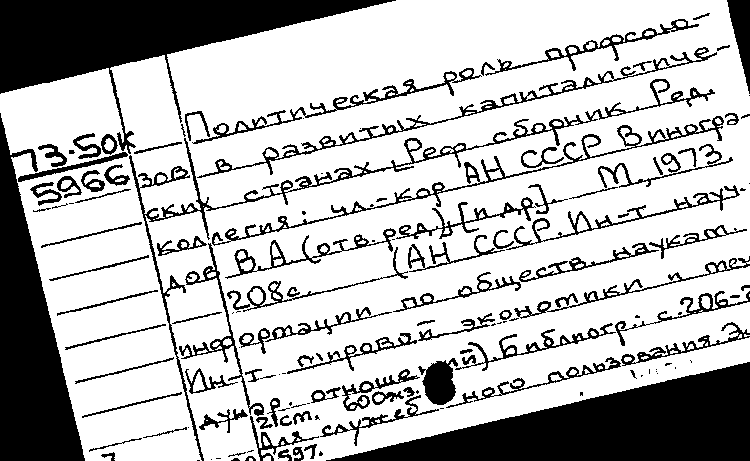 73.50к
5966
Политическая роль профсою-
зов в развитых капиталистиче-
ских странах. Реф. сборник. Ред.
коллегия: чл.-кор АН СССР Виногра-
дов В.А (отв. ред.), [и др.]. М., 1973.
208с. (АН СССР. Ин-т науч.
информации по обществ. наукам.
Ин-т мировой экономики и меж
дунар. отношений). Библиогр.: с.206-2
21см. 600экз.
Для служеб ного пользования. Эк
597.